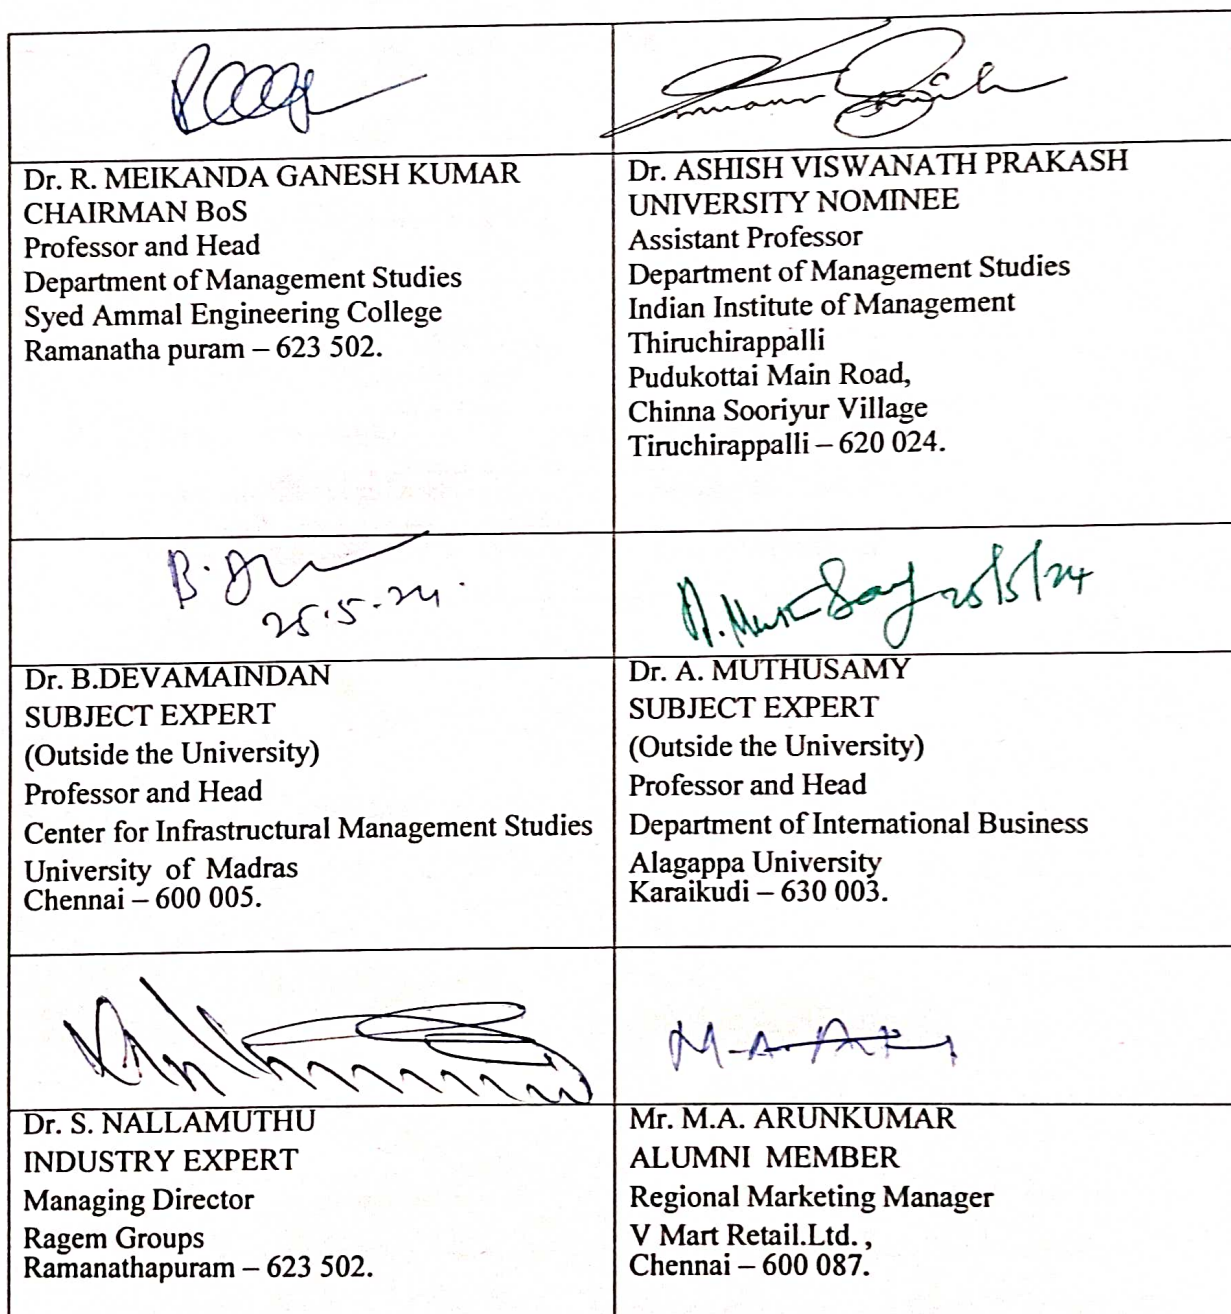 Dr. R. MEIKANDA GANESH KUMAR
CHAIRMAN BoS
Professor and Head
Department of Management Studies
Syed Ammal Engineering College
Ramanatha puram – 623 502.
Dr. ASHISH VISWANATH PRAKASH
UNIVERSITY NOMINEE
Assistant Professor
Department of Management Studies
Indian Institute of Management
Thiruchirappalli
Pudukottai Main Road,
Chinna Sooriyur Village
Tiruchirappalli – 620 024.
25.5.24.
25/5/24
Dr. B.DEVAMAINDAN
SUBJECT EXPERT
(Outside the University)
Professor and Head
Center for Infrastructural Management Studies
University of Madras
Chennai – 600 005.
Dr. A. MUTHUSAMY
SUBJECT EXPERT
(Outside the University)
Professor and Head
Department of International Business
Alagappa University
Karaikudi – 630 003.
Dr. S. NALLAMUTHU
INDUSTRY EXPERT
Managing Director
Ragem Groups
Ramanathapuram – 623 502.
Mr. M.A. ARUNKUMAR
ALUMNI MEMBER
Regional Marketing Manager
V Mart Retail.Ltd. ,
Chennai – 600 087.